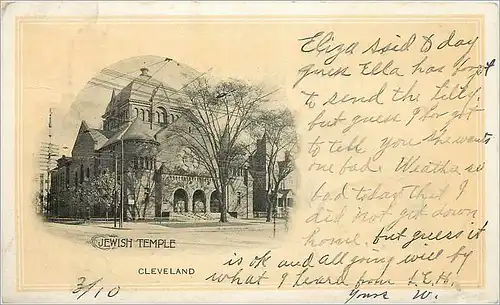 Eliza said to day
guess Ella has forgot
to send the
but guess I forgot
to tell you she wants
one bad. Weather so
bad today that I
did not get down
home, but guess it
is ok and all going well by
what I learn from L.E.H.
Yours W.
JEWISH TEMPLE
CLEVELAND
3/10